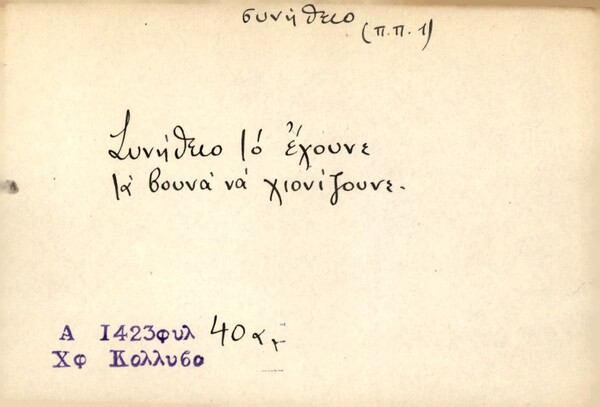 συνήθειο
(π.π. 1)
Συνήθειο τό ἔχουνε
τά βουνά νά χιονίζουνε.
Α 1423φυλ 40 α,
Χφ Κολλυβα